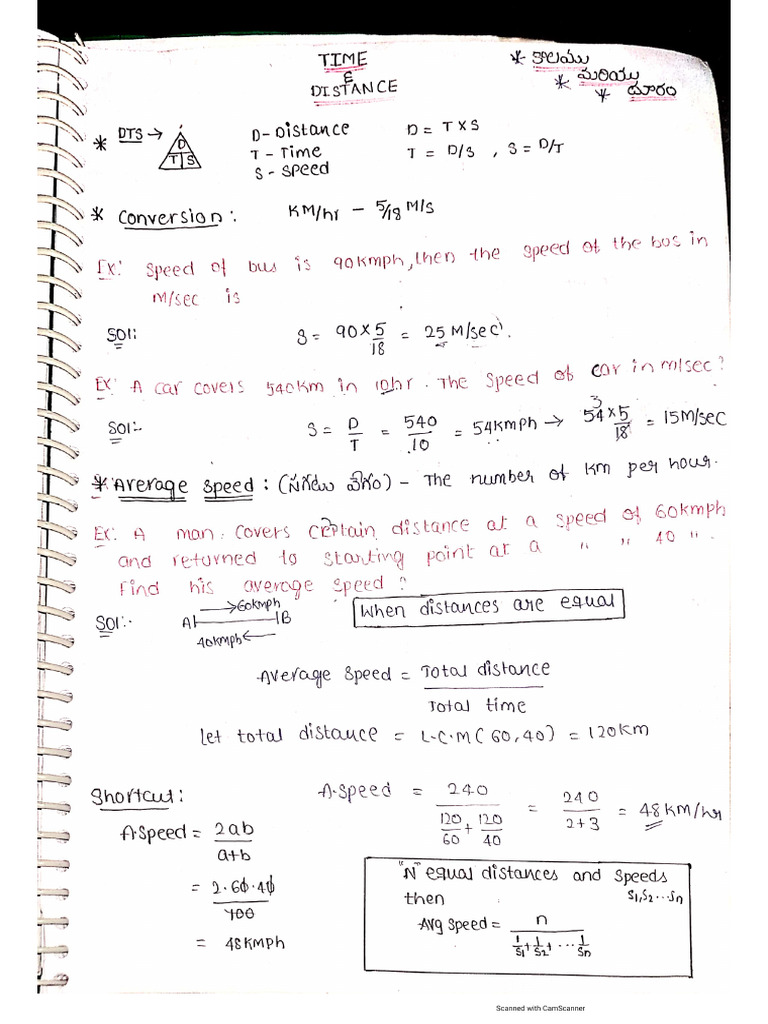 TIME
&
DISTANCE
* కాలము
* మరియు
* దూరం
* DTS → D T S
D - Distance
T - Time
S - Speed
D = T × S
T = D/S , S = D/T
* Conversion : KM/hr - 5/18 M/S
Ex: Speed of bus is 90kmph, then the speed of the bus in
M/sec is
Sol: S = 90 × 5/18 = 25 M/sec.
Ex: A car covers 540km in 10hr. The speed of car in m/sec?
Sol:- S = D/T = 540/10 = 54kmph → 54 × 5/18 = 15M/sec
3
* Average speed : (సగటు వేగం) - The number of km per hour.
Ex: A man covers certain distance at a speed of 60kmph
and returned to starting point at a " " 40 ".
Find his average speed?
Sol:- A 60kmph B
40kmph
When distances are equal
Average speed = Total distance / Total time
Let total distance = L.C.M(60,40) = 120km
A.speed = 240 / (120/60 + 120/40) = 240 / (2+3) = 48 KM/hr
Shortcut:
A.Speed = 2ab / (a+b)
= 2.60.40 / 100
= 48kmph
"N" equal distances and speeds
then S1,S2...Sn
Avg speed = n / (1/S1 + 1/S2 + ... 1/Sn)
Scanned with CamScanner